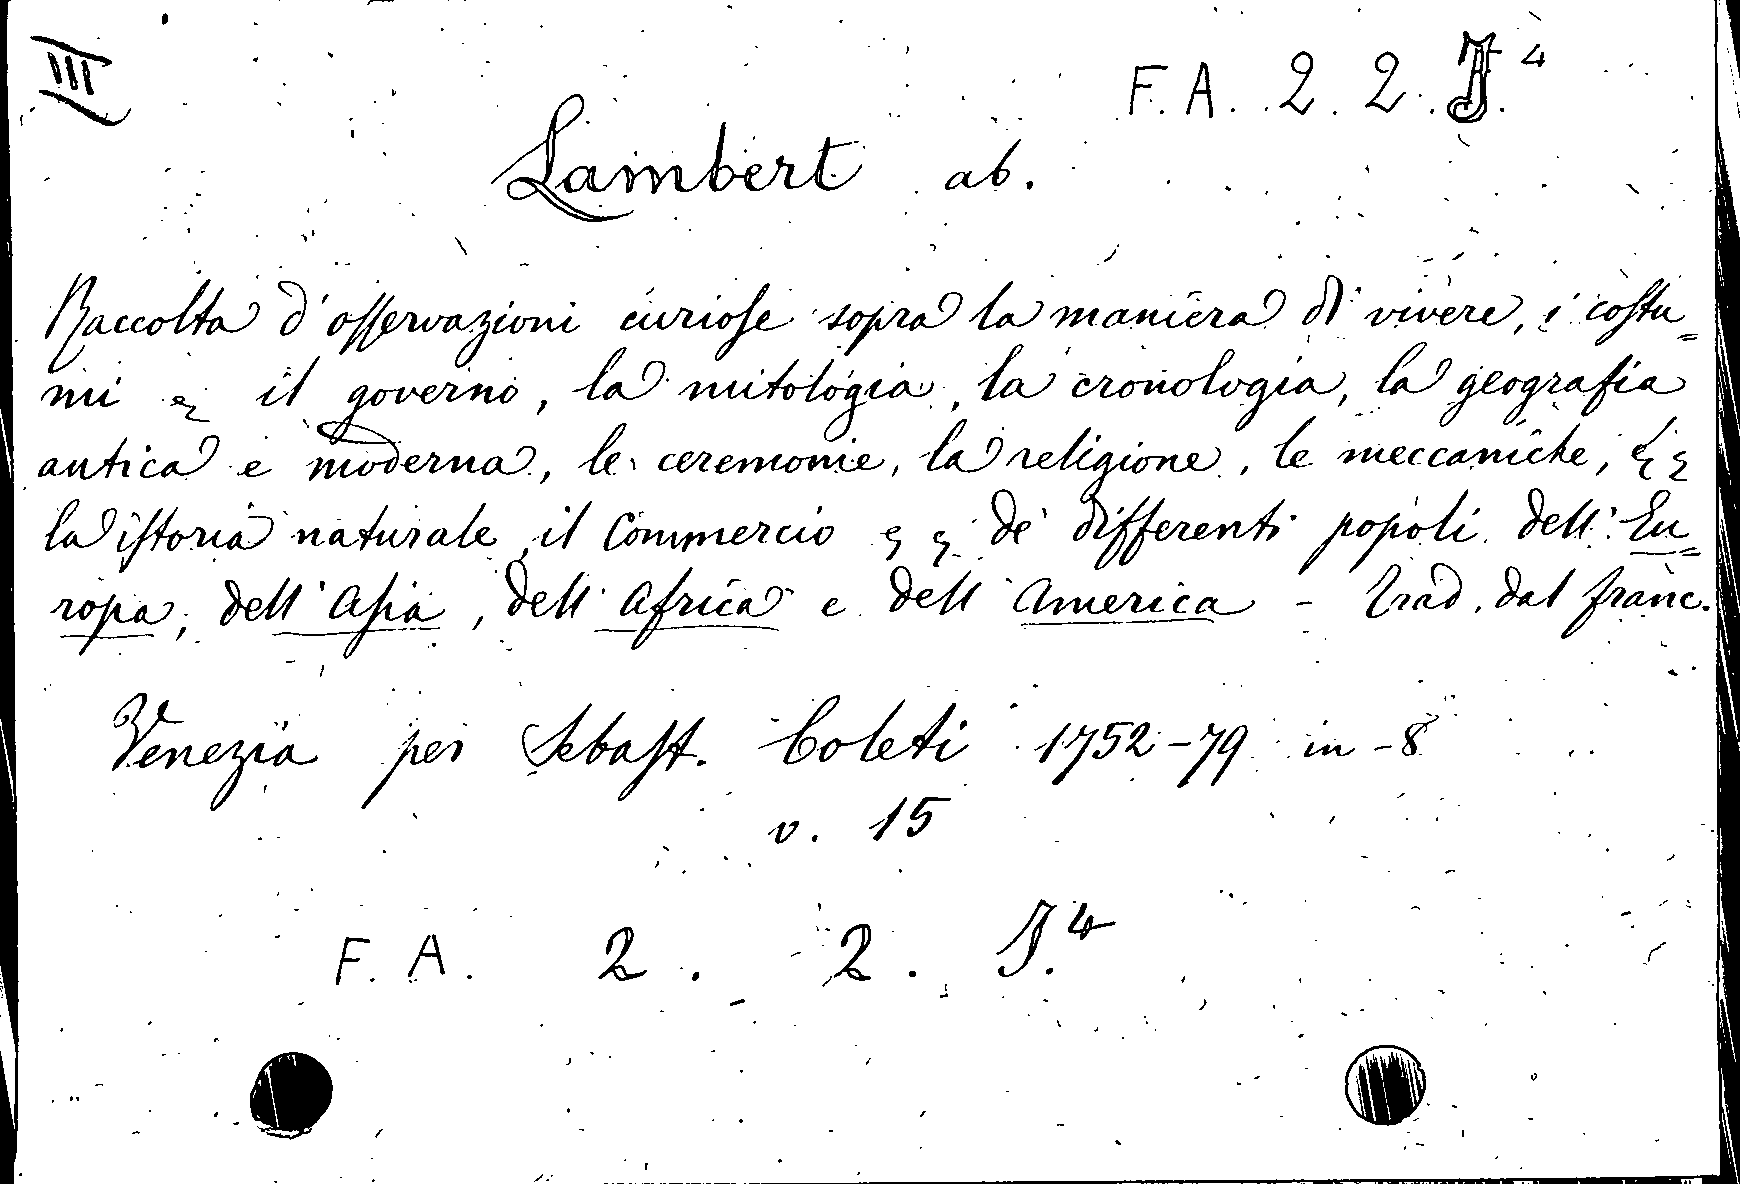 III
F. A. 2. 2. J.4
Lambert ab.
Raccolta d'osservazioni curiose sopra la maniera di vivere, i costu=
mi e il governo, la mitologia, la cronologia, la geografia
antica e moderna, le ceremonie, la religione, le meccaniche,
la istoria naturale, il commercio de' differenti popoli dell'Eu=
ropa, dell'Asia, dell'Africa e dell America - Trad. dal franc.
Venezia per Sebast. Coleti 1752-79 in-8
v. 15
F. A. 2. 2. J.4